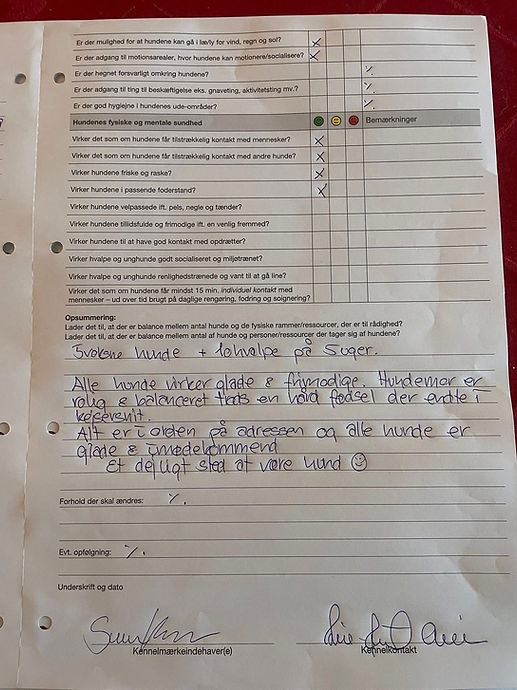 Er der mulighed for at hundene kan gå i læ/ly for vind, regn og sol? X
Er der adgang til motionsarealer, hvor hundene kan motionere/socialisere? X
Er der hegnet forsvarligt omkring hundene? ٪
Er der adgang til ting til beskæftigelse eks. gnaveting, aktivitetsting mv.? ٪
Er der god hygiejne i hundenes ude-områder? ٪
Hundenes fysiske og mentale sundhed Bemærkninger
Virker det som om hundene får tilstrækkelig kontakt med mennesker? X
Virker det som om hundene får tilstrækkelig kontakt med andre hunde? X
Virker hundene friske og raske? X
Virker hundene i passende foderstand? X
Virker hundene velpassede ift. pels, negle og tænder?
Virker hundene tillidsfulde og frimodige ift. en venlig fremmed?
Virker hundene til at have god kontakt med opdrætter?
Virker hvalpe og unghunde godt socialiseret og miljøtrænet?
Virker hvalpe og unghunde renlighedstrænede og vant til at gå line?
Virker det som om hundene får mindst 15 min. individuel kontakt med
mennesker – ud over tid brugt på daglige rengøring, fodring og soignering?
Opsummering:
Lader det til, at der er balance mellem antal hunde og de fysiske rammer/ressourcer, der er til rådighed?
Lader det til, at der er balance mellem antal af hunde og personer/ressourcer der tager sig af hundene?
5 voksne hunde + 10 hvalpe på 5 uger.
Alle hunde virker glade & frimodige. Hundemor er
rolig & balanceret trods en hård fødsel der endte i
kejsersnit.
Alt er i orden på adressen og alle hunde er
glade & imødekommend
Et dejligt sted at være hund ☺
Forhold der skal ændres: ٪.
Evt. opfølgning: ٪.
Underskrift og dato
Kennelmærkeindehaver(e) Kennelkontakt